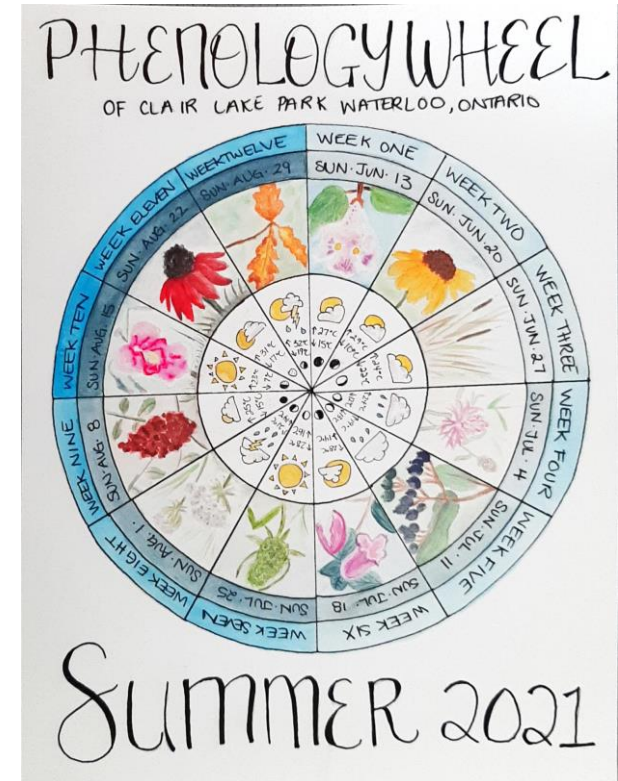 PHENOLOGY WHEEL
OF CLAIR LAKE PARK WATERLOO, ONTARIO
WEEK ONE
SUN. JUN. 13
WEEK TWO
SUN. JUN. 20
WEEK THREE
SUN. JUN. 27
WEEK FOUR
SUN. JUL. 4
WEEK FIVE
SUN. JUL. 11
WEEK SIX
SUN. JUL. 18
WEEK SEVEN
SUN. JUL. 25
WEEK EIGHT
SUN. AUG. 1
WEEK NINE
SUN. AUG. 8
WEEK TEN
SUN. AUG. 15
WEEK ELEVEN
SUN. AUG. 22
WEEK TWELVE
SUN. AUG. 29
↑27°C
↓15°C
SUMMER 2021